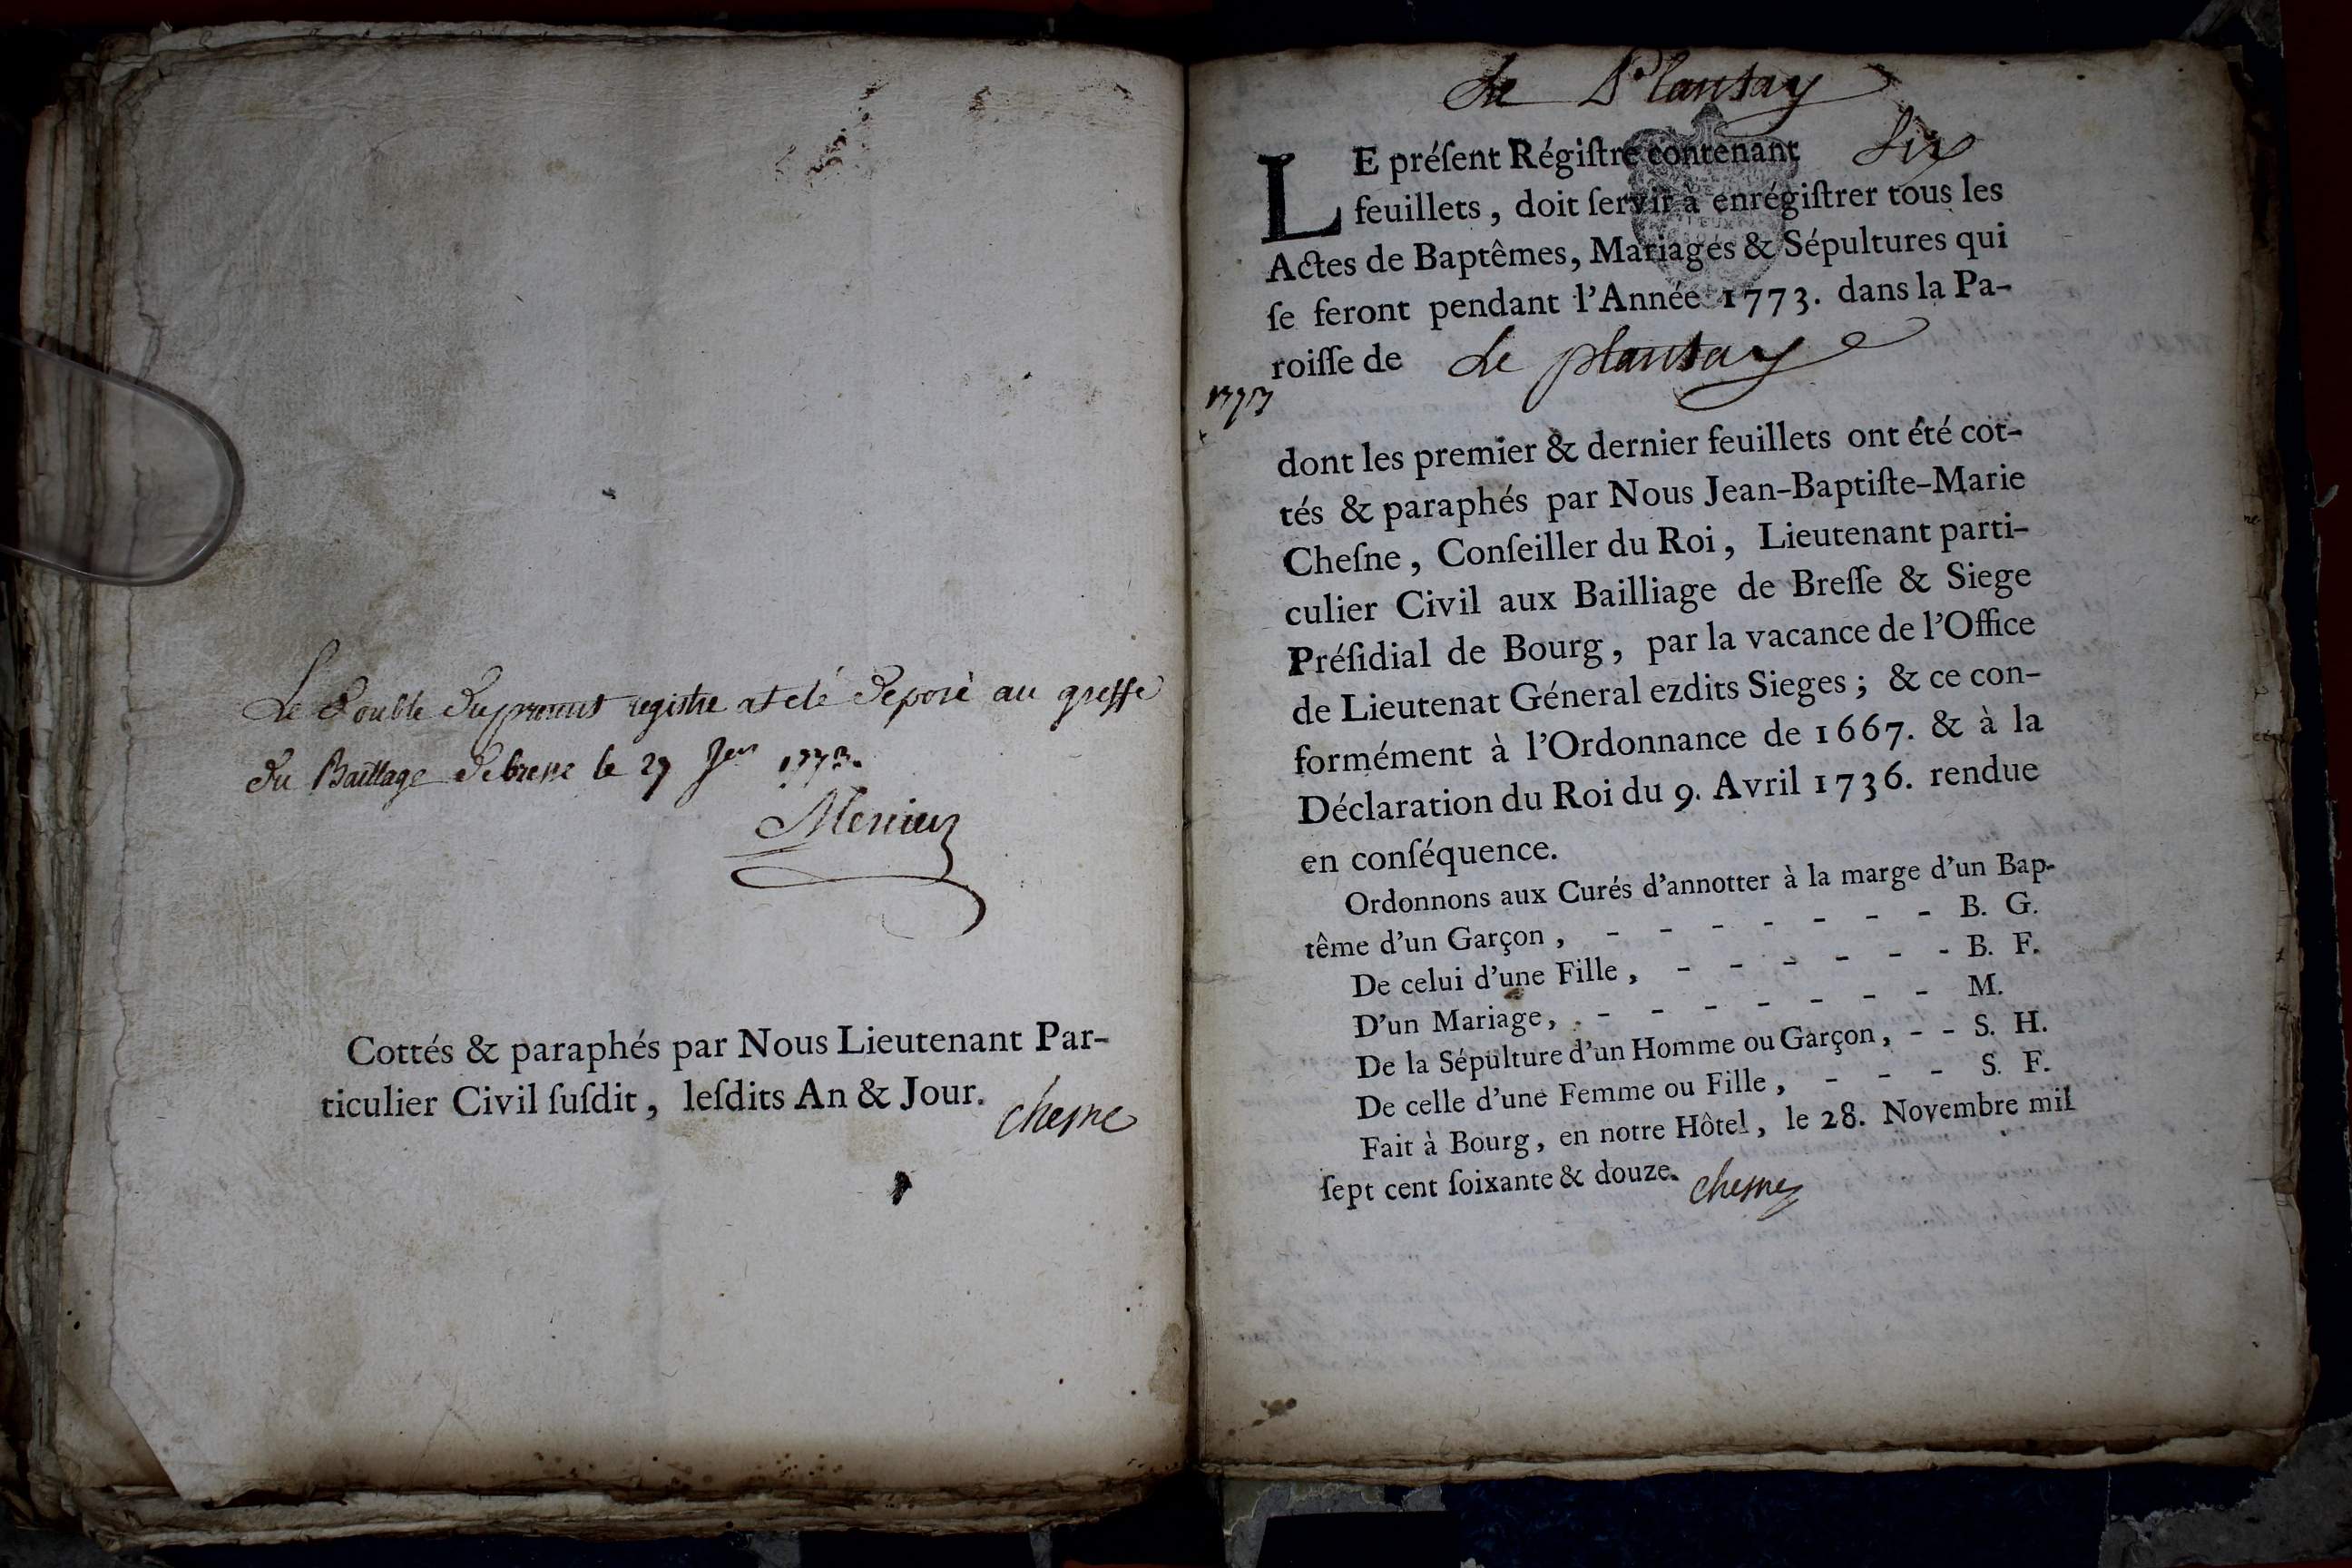 Le Double du present registre at eté deposé au greffe
du Bailliage de bresse le 29 Jer 1773.
Cottés & paraphés par Nous Lieutenant Par-
ticulier Civil ſuſdit, leſdits An & Jour.
chesne
Le Plantay
LE préſent Régiſtre contenant six
feuillets, doit ſervir à enrégiſtrer tous les
Actes de Baptêmes, Mariages & Sépultures qui
ſe feront pendant l'Année 1773. dans la Pa-
roiſſe de Le plantay
1773
dont les premier & dernier feuillets ont été cot-
tés & paraphés par Nous Jean-Baptiſte-Marie
Cheſne, Conſeiller du Roi, Lieutenant parti-
culier Civil aux Bailliage de Breſſe & Siege
Préſidial de Bourg, par la vacance de l'Office
de Lieutenat Géneral ezdits Sieges; & ce con-
formément à l'Ordonnance de 1667. & à la
Déclaration du Roi du 9. Avril 1736. rendue
en conſéquence.
Ordonnons aux Curés d'annotter à la marge d'un Bap-
tême d'un Garçon, - - - - - - - B. G.
De celui d'une Fille, - - - - - - B. F.
D'un Mariage, - - - - - - - M.
De la Sépulture d'un Homme ou Garçon, - - S. H.
De celle d'une Femme ou Fille, - - - S. F.
Fait à Bourg, en notre Hôtel, le 28. Novembre mil
ſept cent ſoixante & douze. chesne